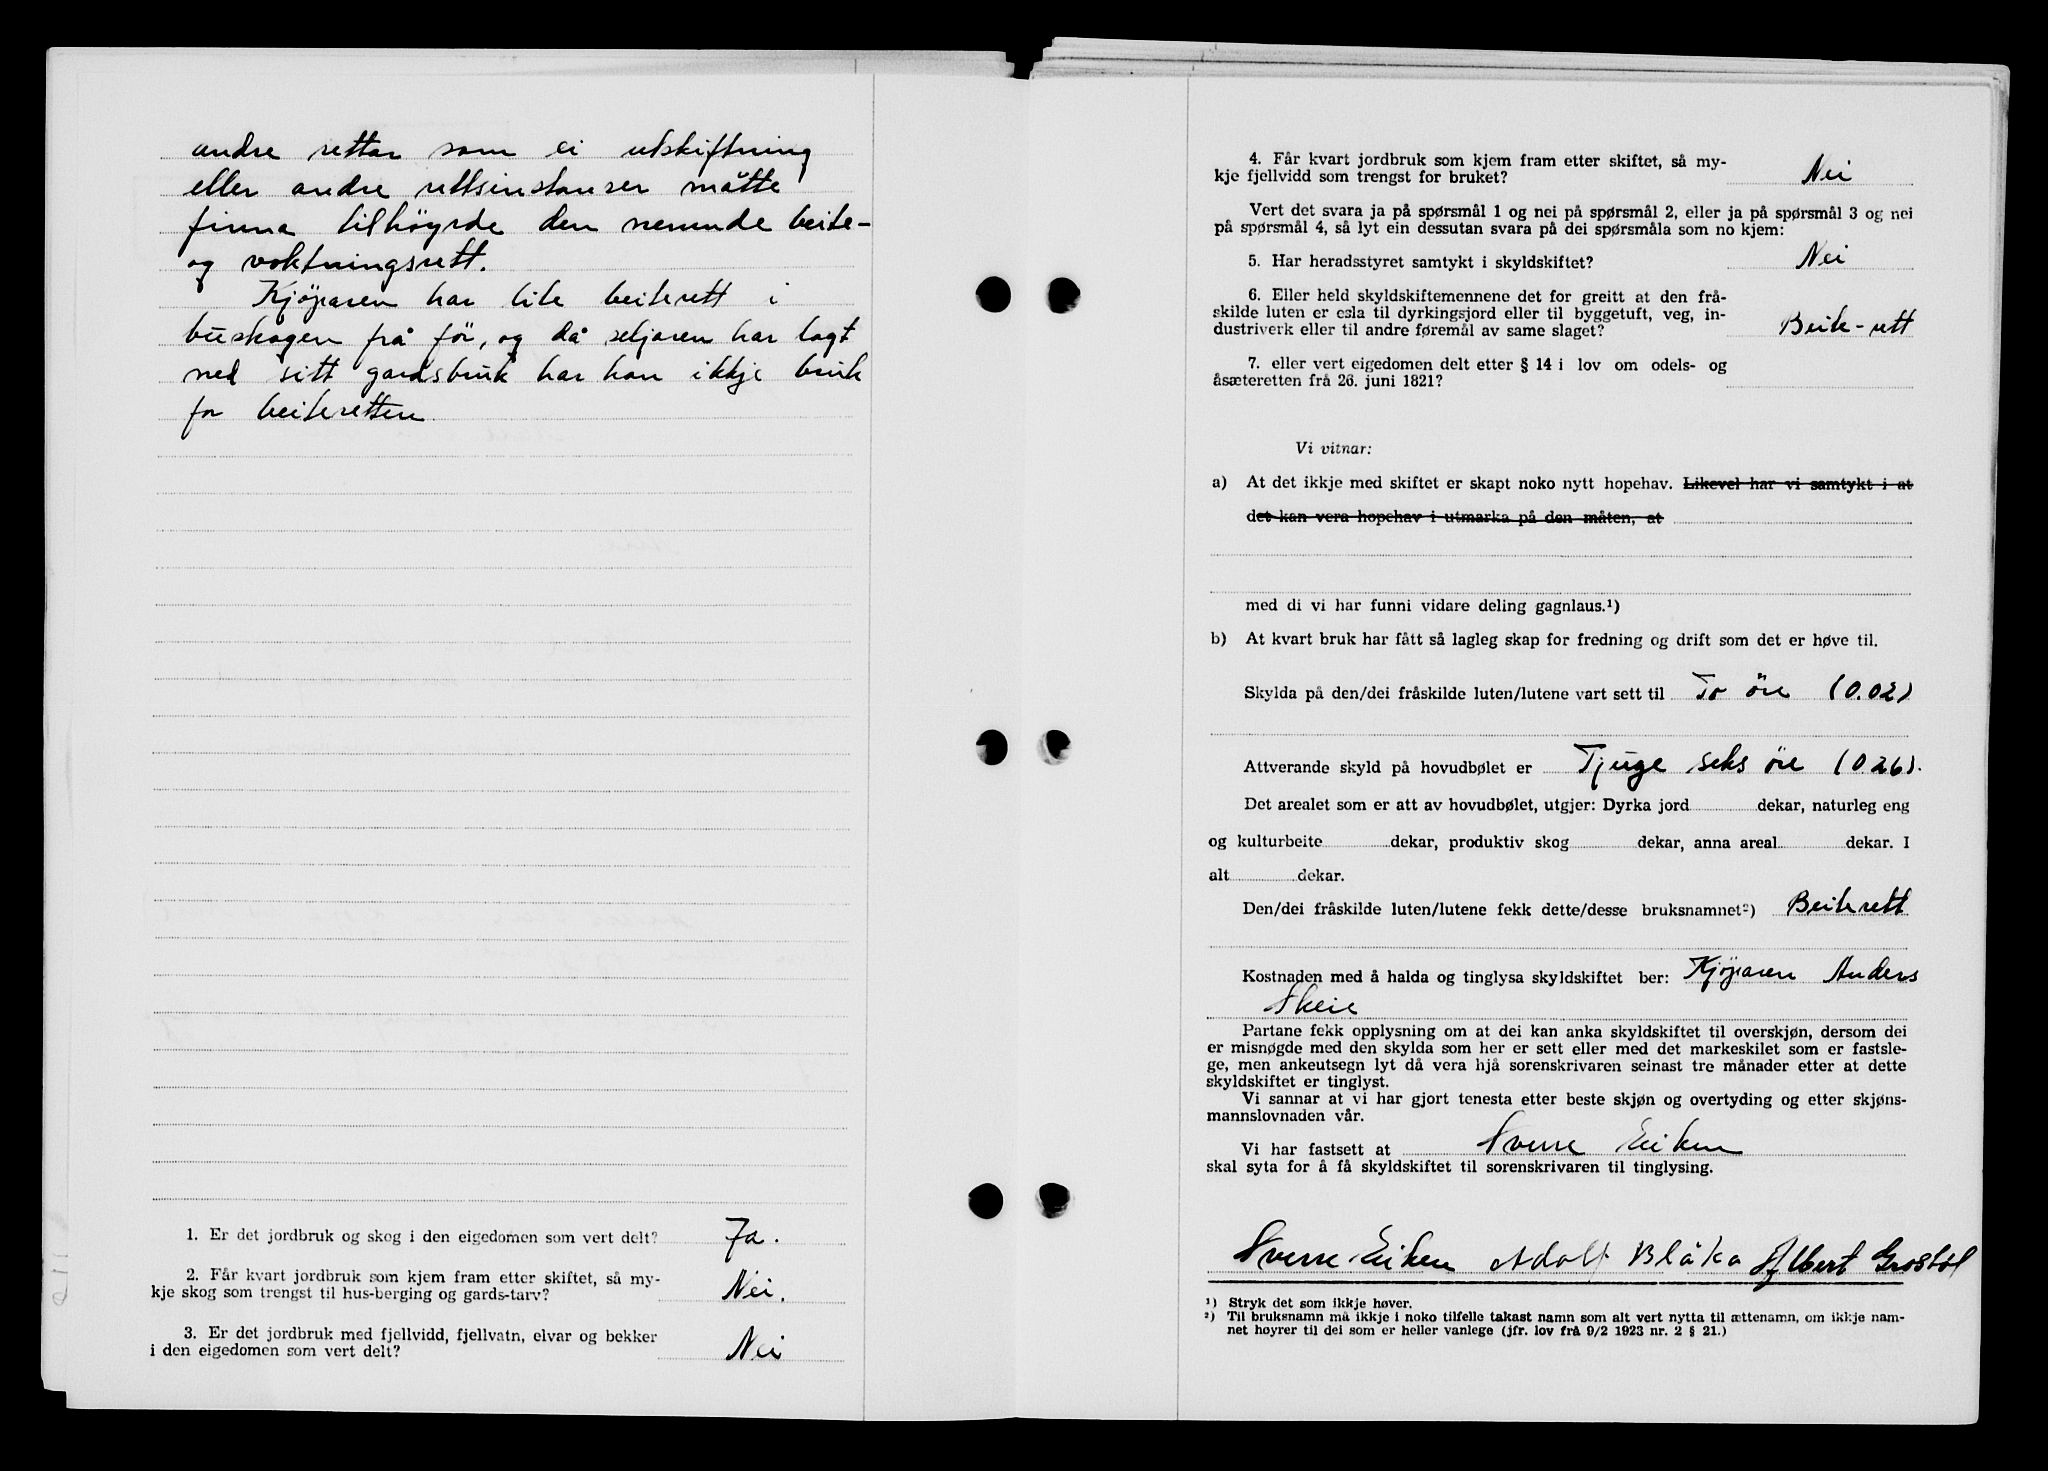 andre rettar som ei utskiftning
eller andre rettsinstanser måtte
finna tilhöyrde den nemnde beite-
og voktningsrett.
Kjöparen har lite beiterett i
buskogen frå för, og då seljaren har lagt
ned sitt gardsbruk har han ikkje bruk
for beiteretten.
1. Er det jordbruk og skog i den eigedomen som vert delt? Ja.
2. Får kvart jordbruk som kjem fram etter skiftet, så my-
kje skog som trengst til hus-berging og gards-tarv? Nei.
3. Er det jordbruk med fjellvidd, fjellvatn, elvar og bekker
i den eigedomen som vert delt? Nei
4. Får kvart jordbruk som kjem fram etter skiftet, så my-
kje fjellvidd som trengst for bruket? Nei
Vert det svara ja på spørsmål 1 og nei på spørsmål 2, eller ja på spørsmål 3 og nei
på spørsmål 4, så lyt ein dessutan svara på dei spørsmåla som no kjem:
5. Har heradsstyret samtykt i skyldskiftet? Nei
6. Eller held skyldskiftemennene det for greitt at den frå-
skilde luten er esla til dyrkingsjord eller til byggetuft, veg, in-
dustriverk eller til andre føremål av same slaget? Beite-rett
7. eller vert eigedomen delt etter § 14 i lov om odels- og
åsæteretten frå 26. juni 1821?
Vi vitnar:
a) At det ikkje med skiftet er skapt noko nytt hopehav. Likevel har vi samtykt i at
det kan vera hopehav i utmarka på den måten, at
med di vi har funni vidare deling gagnlaus.¹)
b) At kvart bruk har fått så lagleg skap for fredning og drift som det er høve til.
Skylda på den/dei fråskilde luten/lutene vart sett til To öre (0.02)
Attverande skyld på hovudbølet er Tjuge seks öre (0.26).
Det arealet som er att av hovudbølet, utgjer: Dyrka jord dekar, naturleg eng
og kulturbeite dekar, produktiv skog dekar, anna areal dekar. I
alt dekar.
Den/dei fråskilde luten/lutene fekk dette/desse bruksnamnet²) Beiterett
Kostnaden med å halda og tinglysa skyldskiftet ber: Kjöparen Anders
Skeie
Partane fekk opplysning om at dei kan anka skyldskiftet til overskjøn, dersom dei
er misnøgde med den skylda som her er sett eller med det markeskilet som er fastsle-
ge, men ankeutsegn lyt då vera hjå sorenskrivaren seinast tre månader etter at dette
skyldskiftet er tinglyst.
Vi sannar at vi har gjort tenesta etter beste skjøn og overtyding og etter skjøns-
mannslovnaden vår.
Vi har fastsett at Sverre Eiken
skal syta for å få skyldskiftet til sorenskrivaren til tinglysing.
Sverre Eiken Adolf Blåka Albert Grostøl
¹) Stryk det som ikkje høver.
²) Til bruksnamn må ikkje i noko tilfelle takast namn som alt vert nytta til ættenamn, om ikkje nam-
net høyrer til dei som er heller vanlege (jfr. lov frå 9/2 1923 nr. 2 § 21.)